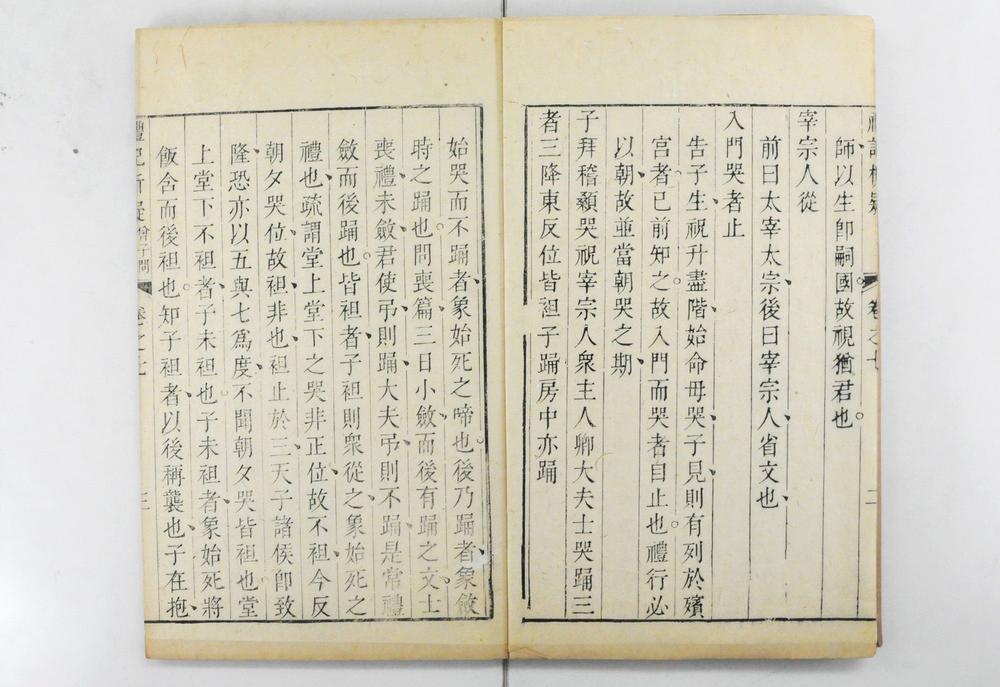 禮記析疑 卷之七 二
師以生卽嗣國故視猶君也。
宰宗人從
前曰太宰太宗後曰宰宗人省文也
入門哭者止
告子生祝升盡階始命毋哭子見則有列於殯
宮者已前知之。故入門而哭者自止也。禮行必
以朝故並當朝哭之期
子拜稽顙哭祝宰宗人衆主人卿大夫士哭踊三
者三降東反位皆袒子踊房中亦踊
始哭而不踊者象始死之啼也。後乃踊者象斂
時之踊也。問喪篇三日小斂而後有踊之文士
喪禮未斂君使弔則踊大夫弔則不踊是常禮
斂而後踊也。皆袒者子袒則衆從之象始死之
禮也疏謂堂上堂下之哭非正位故不袒今反
朝夕哭位故袒非也袒止於三天子諸侯卽致
隆恐亦以五與七爲度不聞朝夕哭皆袒也。堂
上堂下不袒者子未袒也。子未袒者象始死將
飯含而後袒也。知子袒者以後稱襲也子在抱
禮記析疑 曾子問 卷之七 三